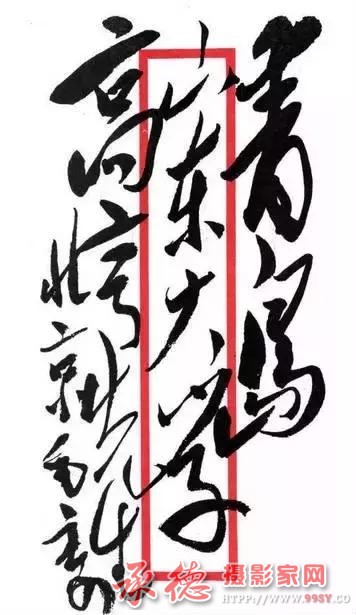 青岛
山东大学
高亨先生
北京毛寄
承德摄影家网
HTTP://WWW.99SY.CO